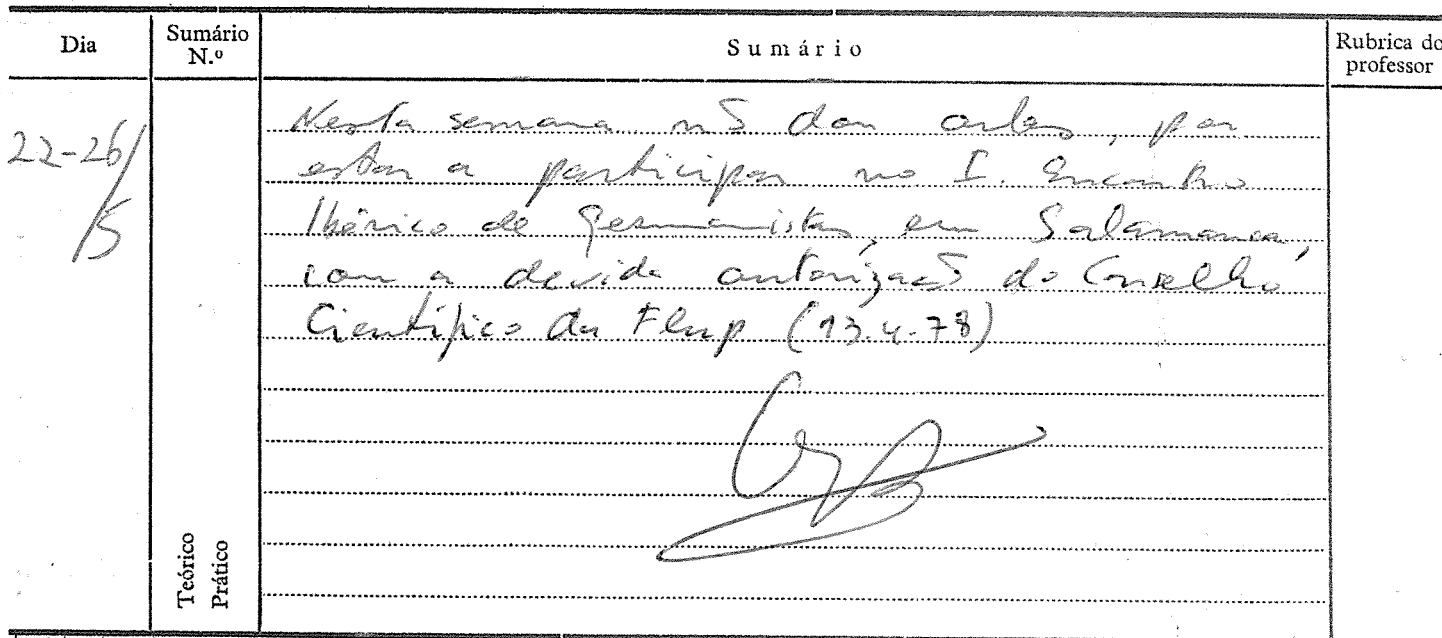 Dia
Sumário N.º
Sumário
Rubrica do professor
22-26/5
Nesta semana nõ dou aulas, por
estar a participar no I. Encontro
Ibérico de Germanistas, em Salamanca,
com a devida autorizaçõ do Conselho
Científico da Flup (13.4.78)
Teórico
Prático